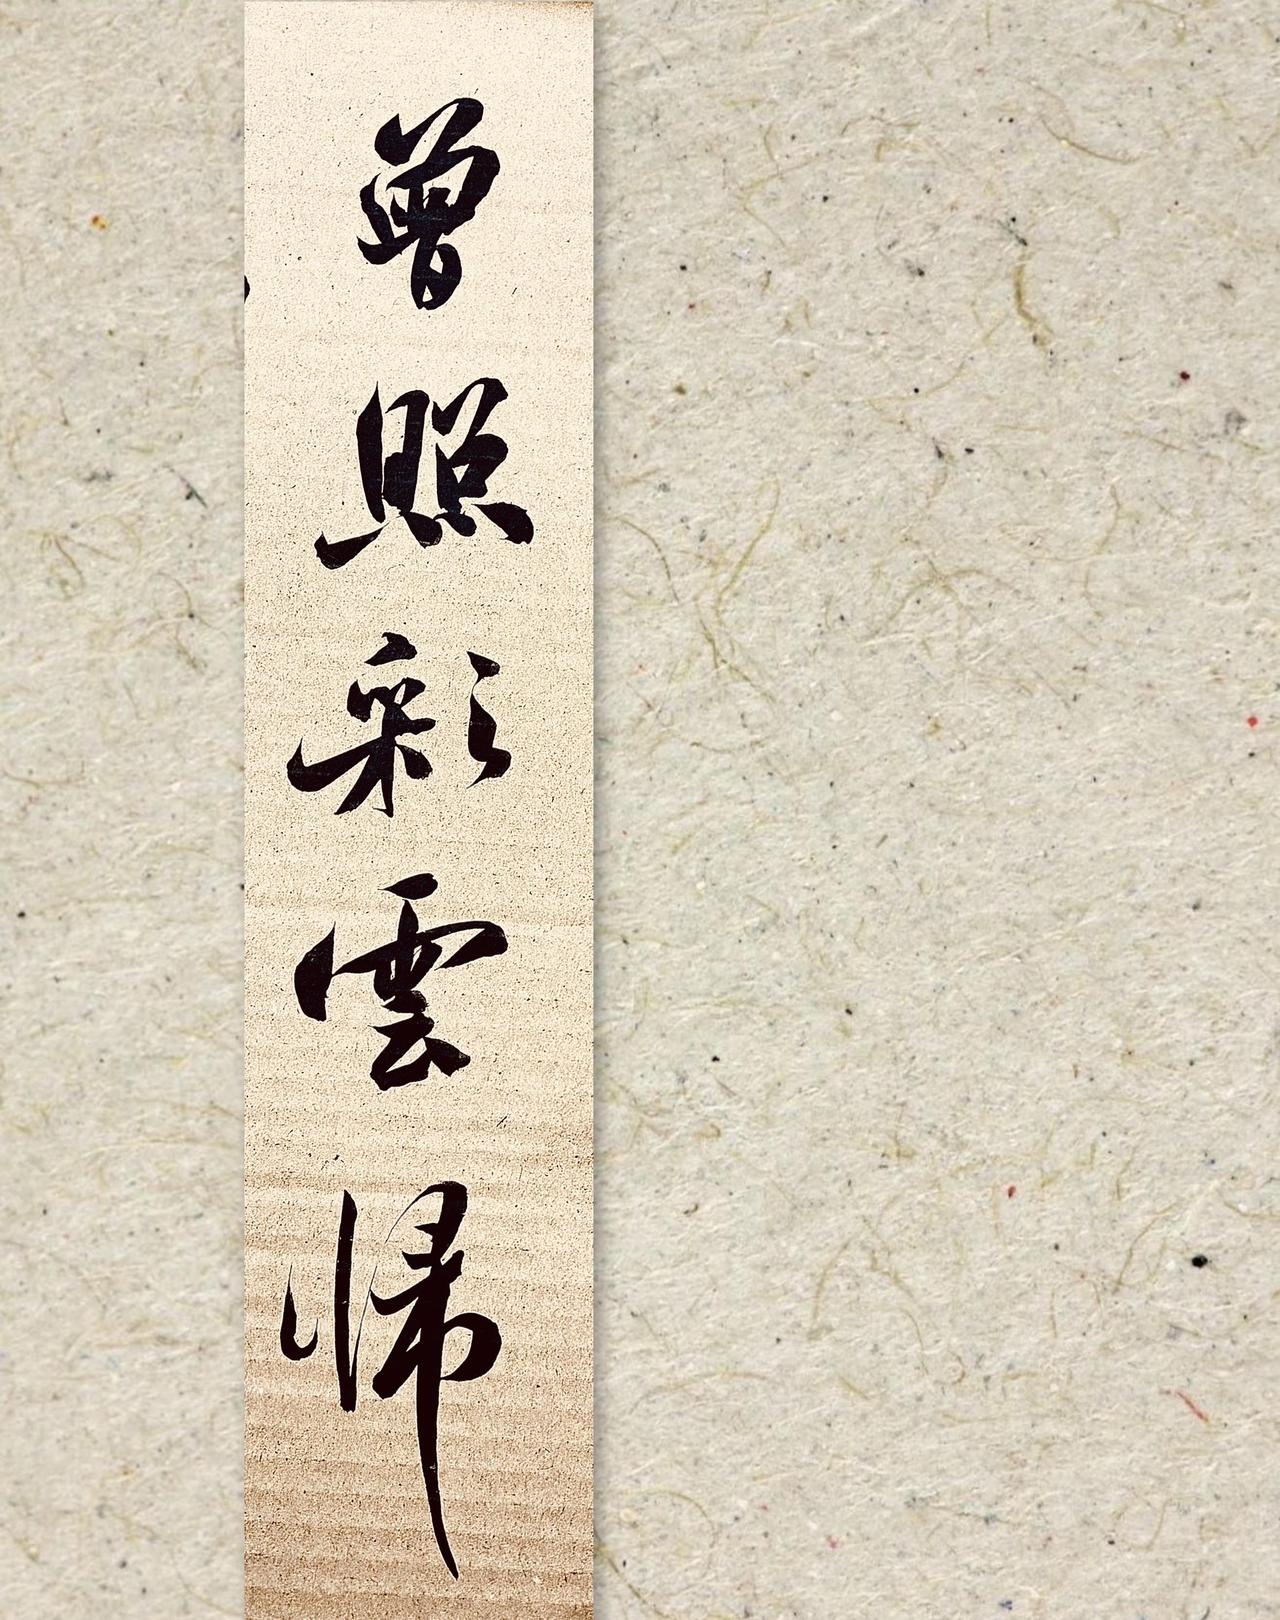 曾照彩雲帰